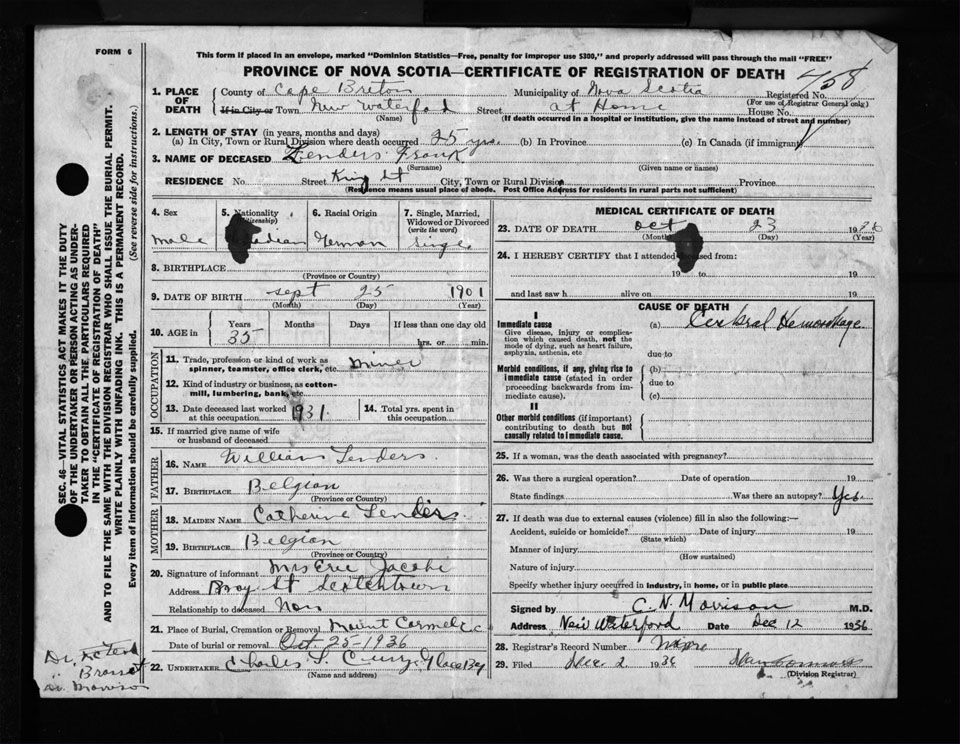 FORM 6
This form if placed in an envelope, marked "Dominion Statistics—Free, penalty for improper use $300," and properly addressed will pass through the mail "FREE"
PROVINCE OF NOVA SCOTIA—CERTIFICATE OF REGISTRATION OF DEATH
458
1. PLACE OF DEATH
County of Cape Breton Municipality of Nova Scotia Registered No.
(For use of Registrar General only)
If in City or Town New Waterford Street at Home House No.
(Name) (If death occurred in a hospital or institution, give the name instead of street and number)
2. LENGTH OF STAY (in years, months and days)
(a) In City, Town or Rural Division where death occurred 25 yrs. (b) In Province (c) In Canada (if immigrant)
3. NAME OF DECEASED Lenders Frank
(Surname) (Given name or names)
RESIDENCE No. Street King St City, Town or Rural Division Province
(Residence means usual place of abode. Post Office Address for residents in rural parts not sufficient)
4. Sex
male
5. Nationality (Citizenship)
6. Racial Origin
German
7. Single, Married, Widowed or Divorced (write the word)
Single
8. BIRTHPLACE
(Province or Country)
9. DATE OF BIRTH Sept 25 1901
(Month) (Day) (Year)
10. AGE in Years Months Days If less than one day old
35 hrs. or min.
OCCUPATION
11. Trade, profession or kind of work as spinner, teamster, office clerk, etc. miner
12. Kind of industry or business, as cotton-mill, lumbering, bank, etc.
13. Date deceased last worked at this occupation 1931.
14. Total yrs. spent in this occupation
15. If married give name of wife or husband of deceased
FATHER
16. NAME William Lenders.
17. BIRTHPLACE Belgian
(Province or Country)
MOTHER
18. MAIDEN NAME Catherine Lenders
19. BIRTHPLACE Belgian
(Province or Country)
20. Signature of informant Mrs Eric Jacobi
Address St Scotchtown
Relationship to deceased Non
21. Place of Burial, Cremation or Removal Mount Carmel
Date of burial or removal Oct. 25-1936
22. UNDERTAKER Charles Curry Glace Bay
(Name and address)
MEDICAL CERTIFICATE OF DEATH
23. DATE OF DEATH Oct 23 1936
(Month) (Day)
24. I HEREBY CERTIFY that I attended deceased from:
19 to 19
and last saw h alive on 19
CAUSE OF DEATH
I
Immediate cause
Give disease, injury or complication which caused death, not the mode of dying, such as heart failure, asphyxia, asthenia, etc
(a) Cerebral Hemorrhage
due to
Morbid conditions, if any, giving rise to immediate cause (stated in order proceeding backwards from immediate cause).
(b)
due to
(c)
II
Other morbid conditions (if important) contributing to death but not causally related to immediate cause.
25. If a woman, was the death associated with pregnancy?
26. Was there a surgical operation? Date of operation 19
State findings Was there an autopsy? Yes.
27. If death was due to external causes (violence) fill in also the following:—
Accident, suicide or homicide? Date of injury 19
(State which)
Manner of injury
(How sustained)
Nature of injury
Specify whether injury occurred in industry, in home, or in public place
Signed by C. N. Morrison M.D.
Address New Waterford Date Dec 12 1936
28. Registrar's Record Number
29. Filed Dec. 2 1936
(Division Registrar)
SEC. 46—VITAL STATISTICS ACT MAKES IT THE DUTY
OF THE UNDERTAKER OR PERSON ACTING AS UNDER-
TAKER TO OBTAIN ALL THE PARTICULARS REQUIRED
IN THE "CERTIFICATE OF REGISTRATION OF DEATH"
AND TO FILE THE SAME WITH THE DIVISION REGISTRAR WHO SHALL ISSUE THE BURIAL PERMIT.
WRITE PLAINLY WITH UNFADING INK. THIS IS A PERMANENT RECORD.
Every item of information should be carefully supplied. (See reverse side for instructions.)
Dr.
Dr Morrison